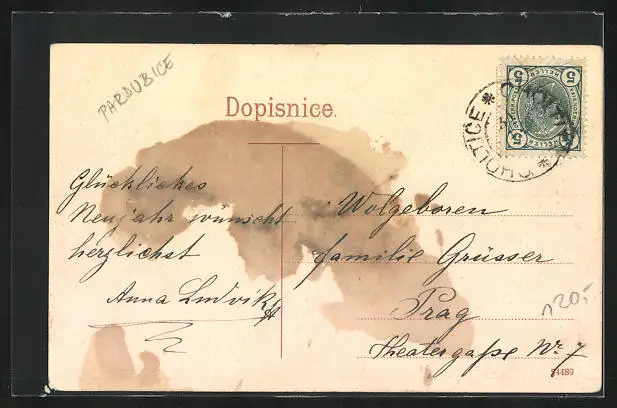 PARDUBICE
Dopisnice.
5 HELLER 5
5
CHOLTICE
Glückliches
Neujahr wünscht
herzlichst
Anna Ludvik
Wolgeboren
familie Grüsser
Prag
Theatergaße Nr. 7
120.-
54489